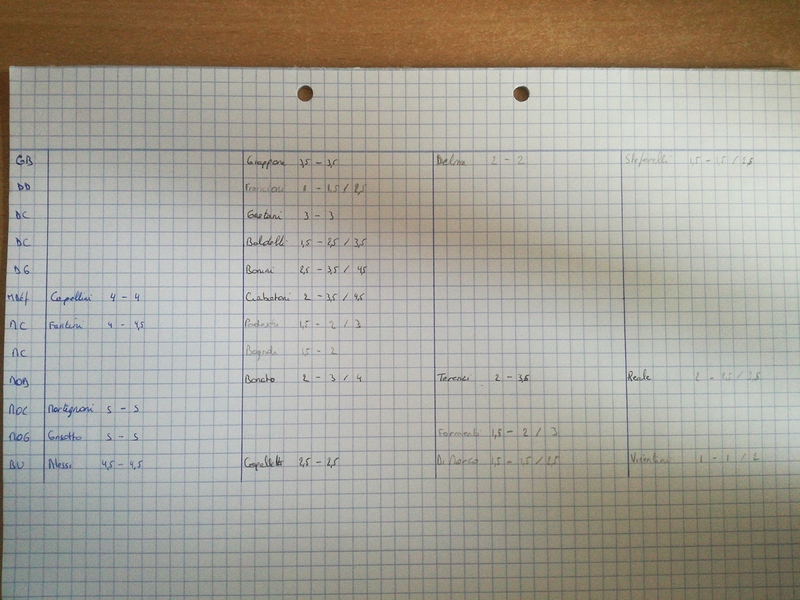 GB Giappone 3,5 - 3,5 2 - 2 Stefanelli 1,5 - 1,5 / 2,5
DD Francioni 1 - 1,5 / 2,5
DC Gaetani 3 - 3
DC Baldelli 1,5 - 2,5 / 3,5
DG Bonini 2,5 - 3,5 / 4,5
Capellini 4 - 4 Ciabattoni 2 - 3,5 / 4,5
MC Fantini 4 - 4,5 1,5 - 2 / 3
MC Bagnoli 1,5 - 2
MOD Bonato 2 - 3 / 4 Terenzi 2 - 3,5 Reale 2 - 2,5 / 3,5
MOC Martignoni 5 - 5
MOG Grisotto 5 - 5 Formenti 1,5 - 2 / 3
BU Alessi 4,5 - 4,5 Cappelletti 2,5 - 2,5 Di Marco 1,5 - 1,5 / 2,5 1 - 1 / 2